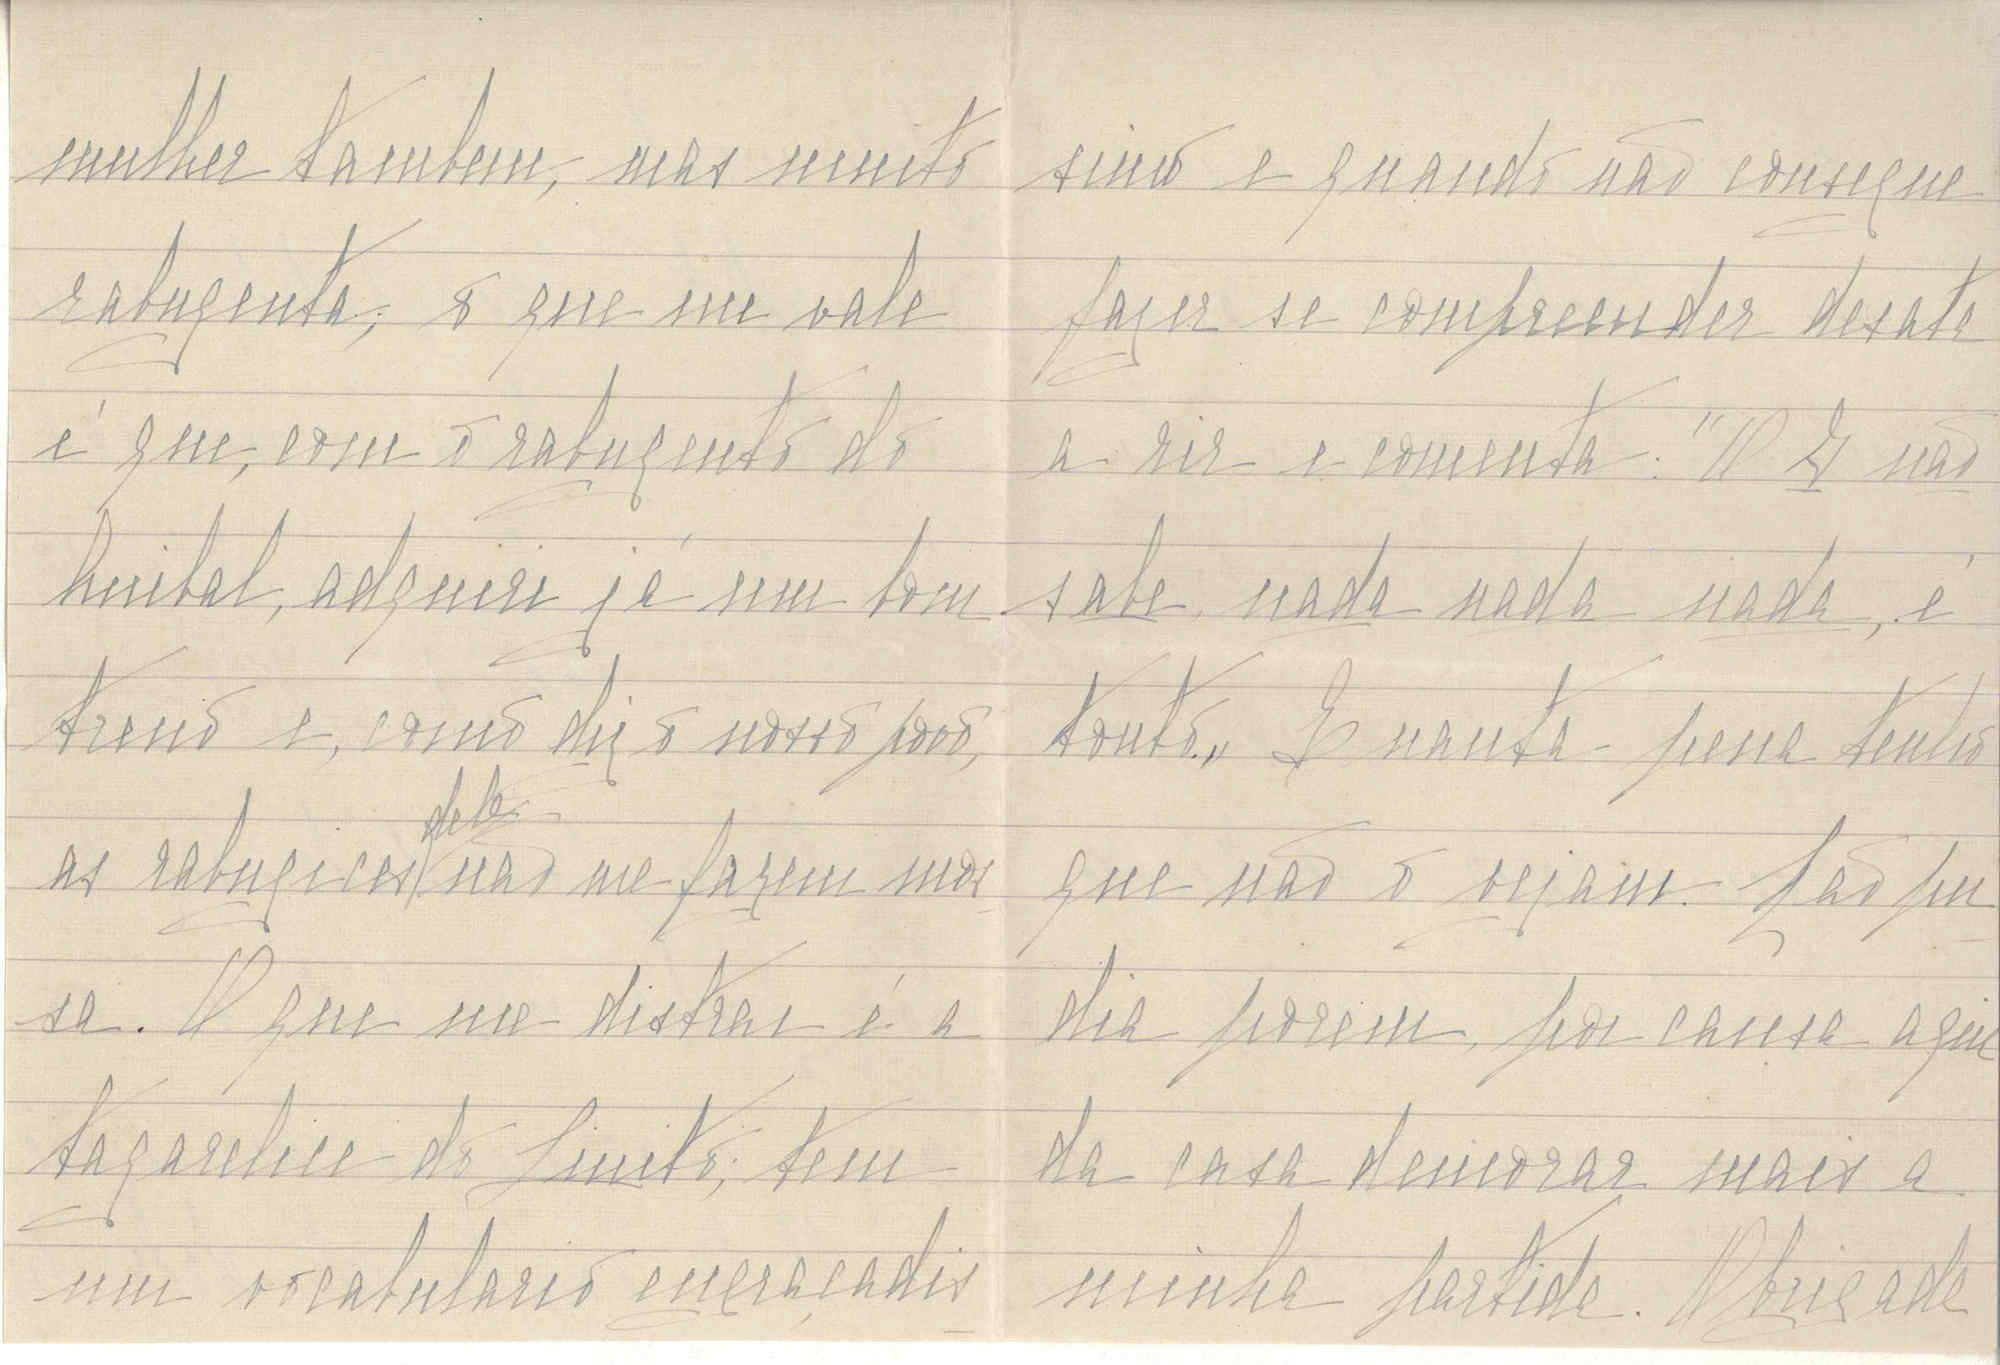 mulher tambem, mas muito
rabugenta; o que me vale
é que, com o rabugento do
Anibal, adquiri já um bom
treno e, como diz o nosso povo,
dele
as rabugices não me fazem mos
sa. O que me distrae é a
tagarelice do Linito; tem
um vocabulario engraçadis
simo e quando não consegue
fazer se compreender desata
a rir e comenta: "O G não
sabe nada nada nada, é
tonto." E nanta pena tenho
que não o vejam. Não pu
dia porem, por causa aqui
da casa demorar mais a
minha partida. Obrigada